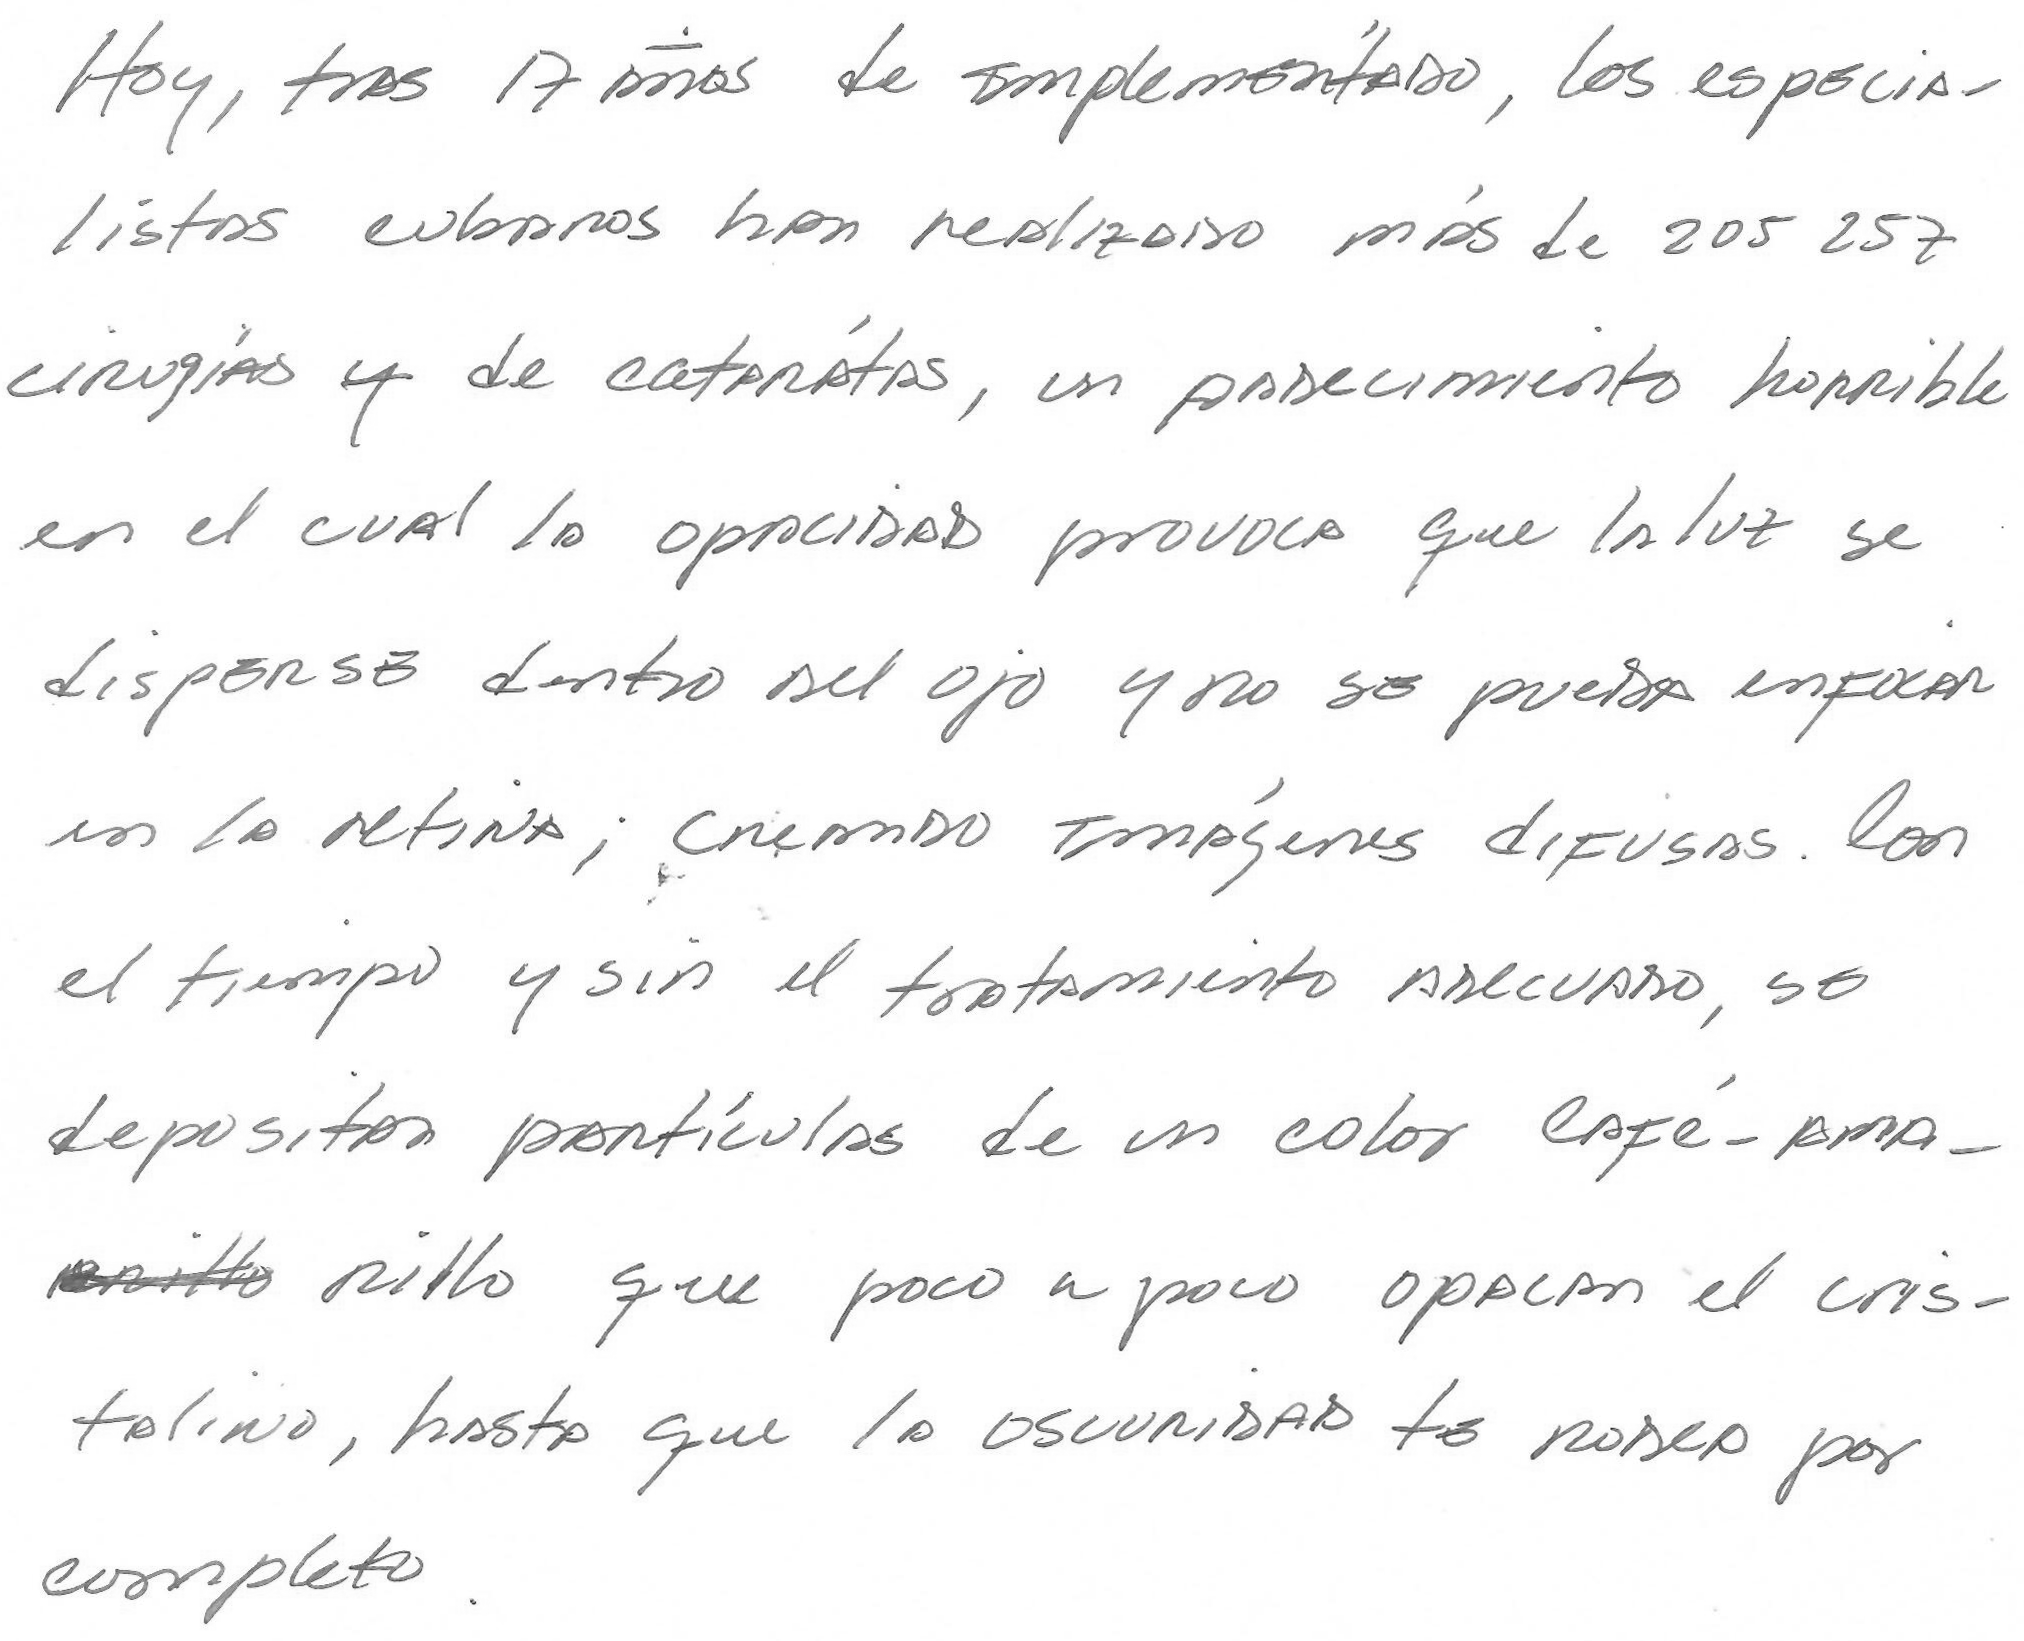 Hoy, tras 17 años de implementado, los especia-
listas cubanos han realizado más de 205 257
cirugías y de catarátas, un padecimiento horrible
en el cual la opacidad provoca que la luz se
disperse dentro del ojo y no se pueda enfocar
en la retina; creando imágenes difusas. Con
el tiempo y sin el tratamiento adecuado, se
depositan partículas de un color café-ama-
rillo que poco a poco opacan el cris-
talino, hasta que la oscuridad te rodea por
completo.